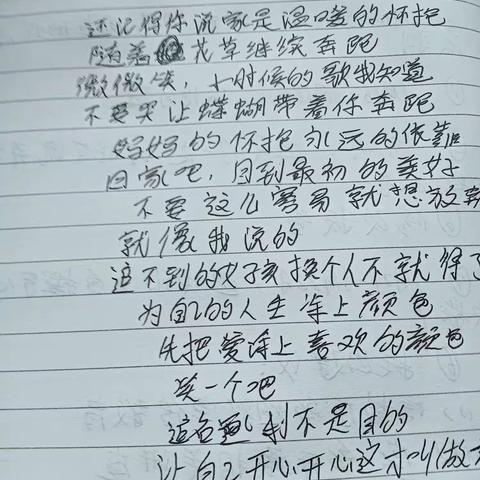 还记得你说家是温暖的怀抱
随着 花草继续奔跑
微微笑，小时候的歌我知道
不要哭让蝴蝶带着你奔跑
好好的怀抱永远的依靠
回家吧，回到最初的美好
不要这么容易就想放弃
就像我说的
追不到的女孩换个人不就得了
为自己的人生涂上颜色
先把爱涂上喜欢的颜色
笑一个吧
追名 利不是目的
让自己开心开心这才叫做